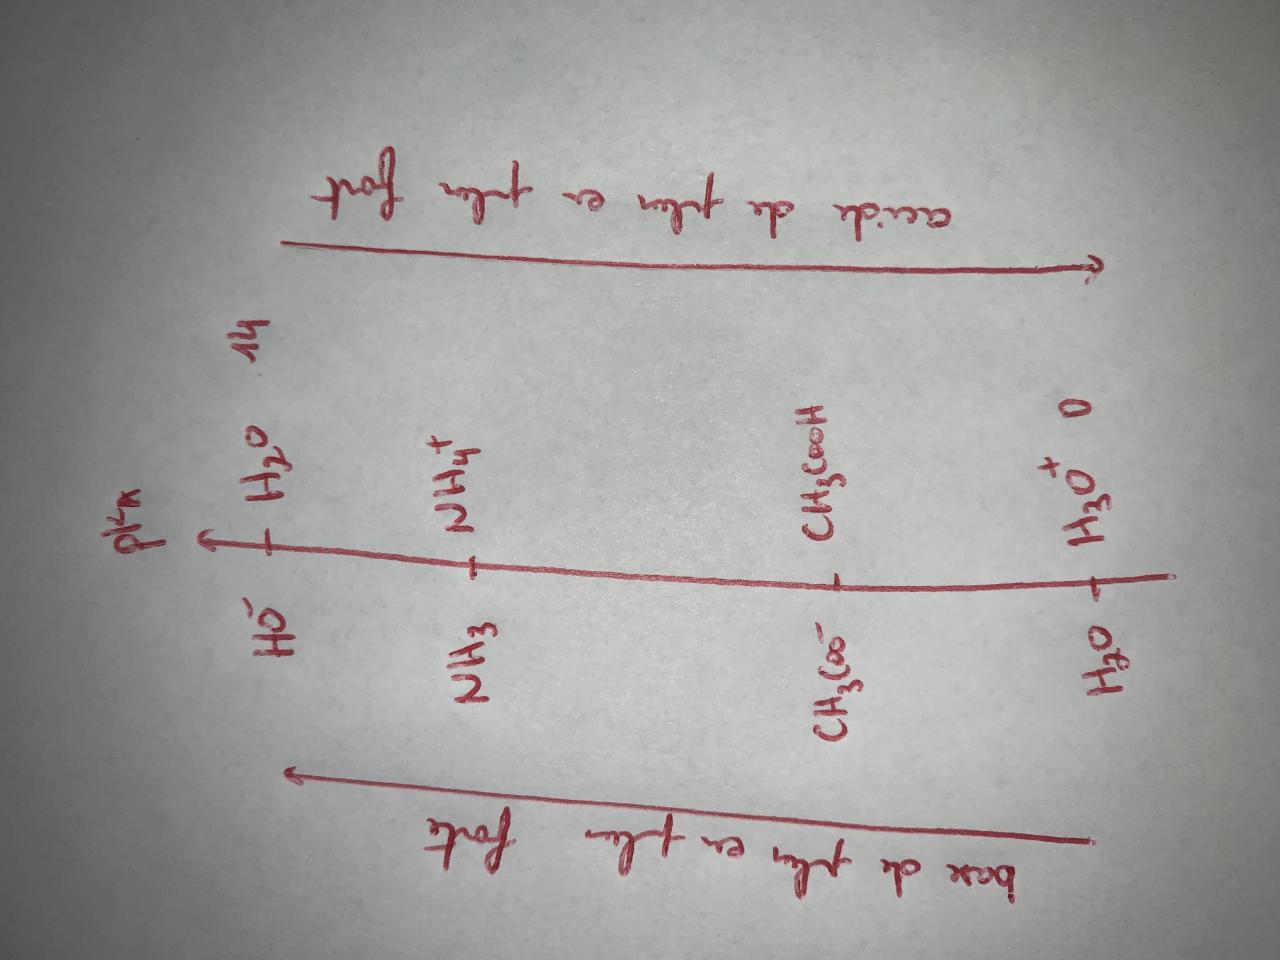 pKA
HO⁻ H₂O 14
NH₃ NH₄⁺
CH₃COO⁻ CH₃COOH
H₂O H₃O⁺ 0
base de plus en plus forte
acide de plus en plus fort